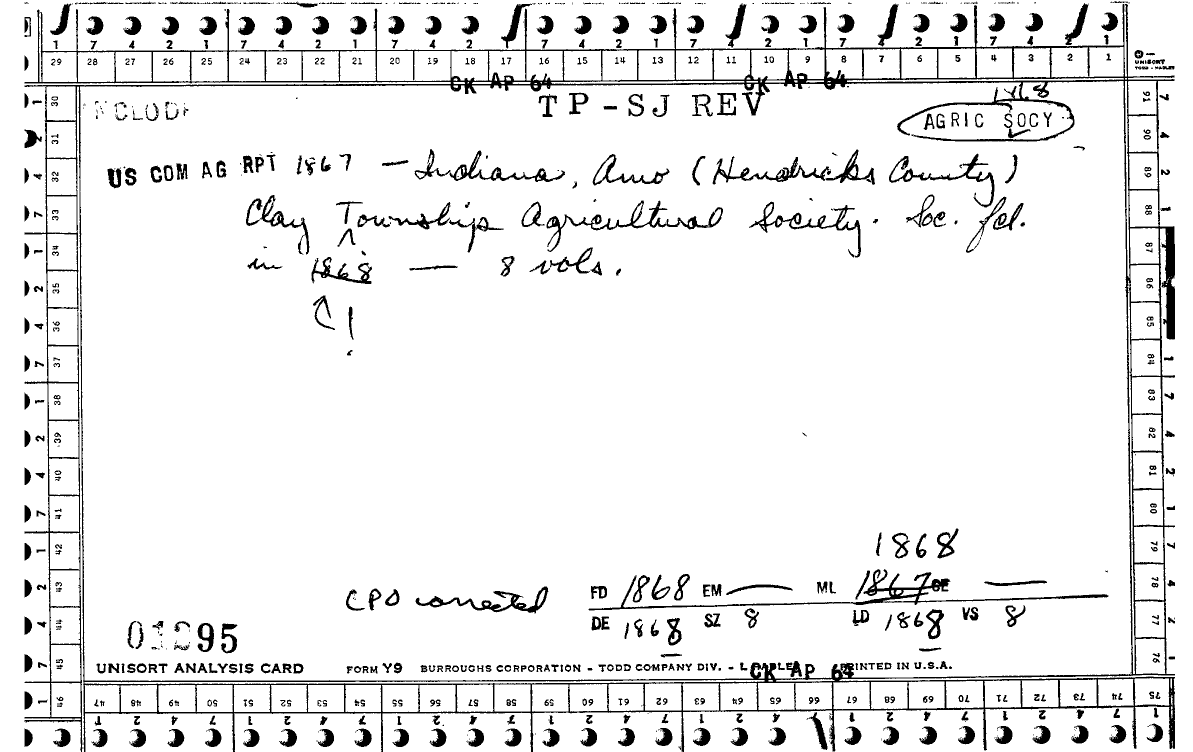 1 7 4 2 1 7 4 2 1 7 4 2 1 7 4 2 1 7 4 2 1 7 4 2 1 7 4 2 1
29 28 27 26 25 24 23 22 21 20 19 18 17 16 15 14 13 12 11 10 9 8 7 6 5 4 3 2 1
UNISORT
CK AP 64 CK AP 64
TP-SJ REV
1868
AGRIC SOCY
US COM AG RPT 1867 — Indiana, Amo (Hendricks County)
Clay Township Agricultural Society. Soc. fd.
in 1868 — 8 vols.
!
1868
CPO corrected
FD 1868 EM — ML 1867 GE —
DE 1868 SZ 8 LD 1868 VS 8
01295
UNISORT ANALYSIS CARD FORM Y9 BURROUGHS CORPORATION - TODD COMPANY DIV. - PRINTED IN U.S.A.
CK AP 64
30 31 32 33 34 35 36 37 38 39 40 41 42 43 44 45 46
91 90 89 88 87 86 85 84 83 82 81 80 79 78 77 76
47 48 49 50 51 52 53 54 55 56 57 58 59 60 61 62 63 64 65 66 67 68 69 70 71 72 73 74 75